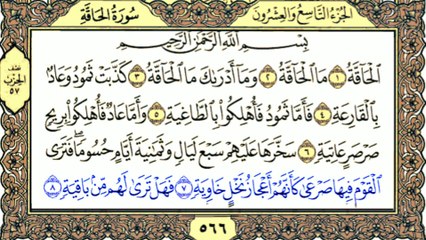 سُورَةُ الْحَاقَّةِ
الْجُزْءُ التَّاسِعُ وَالْعِشْرُونَ
نصف
الحزب
٥٧
بِسْمِ اللَّهِ الرَّحْمَٰنِ الرَّحِيمِ
الْحَاقَّةُ ١ مَا الْحَاقَّةُ ٢ وَمَا أَدْرَىٰكَ مَا الْحَاقَّةُ ٣ كَذَّبَتْ ثَمُودُ وَعَادٌ
بِالْقَارِعَةِ ٤ فَأَمَّا ثَمُودُ فَأُهْلِكُوا بِالطَّاغِيَةِ ٥ وَأَمَّا عَادٌ فَأُهْلِكُوا بِرِيحٍ
صَرْصَرٍ عَاتِيَةٍ ٦ سَخَّرَهَا عَلَيْهِمْ سَبْعَ لَيَالٍ وَثَمَٰنِيَةَ أَيَّامٍ حُسُومًا ۖ فَتَرَى
الْقَوْمَ فِيهَا صَرْعَىٰ كَأَنَّهُمْ أَعْجَازُ نَخْلٍ خَاوِيَةٍ ٧ فَهَلْ تَرَىٰ لَهُم مِّنۢ بَاقِيَةٍ ٨
٥٦٦